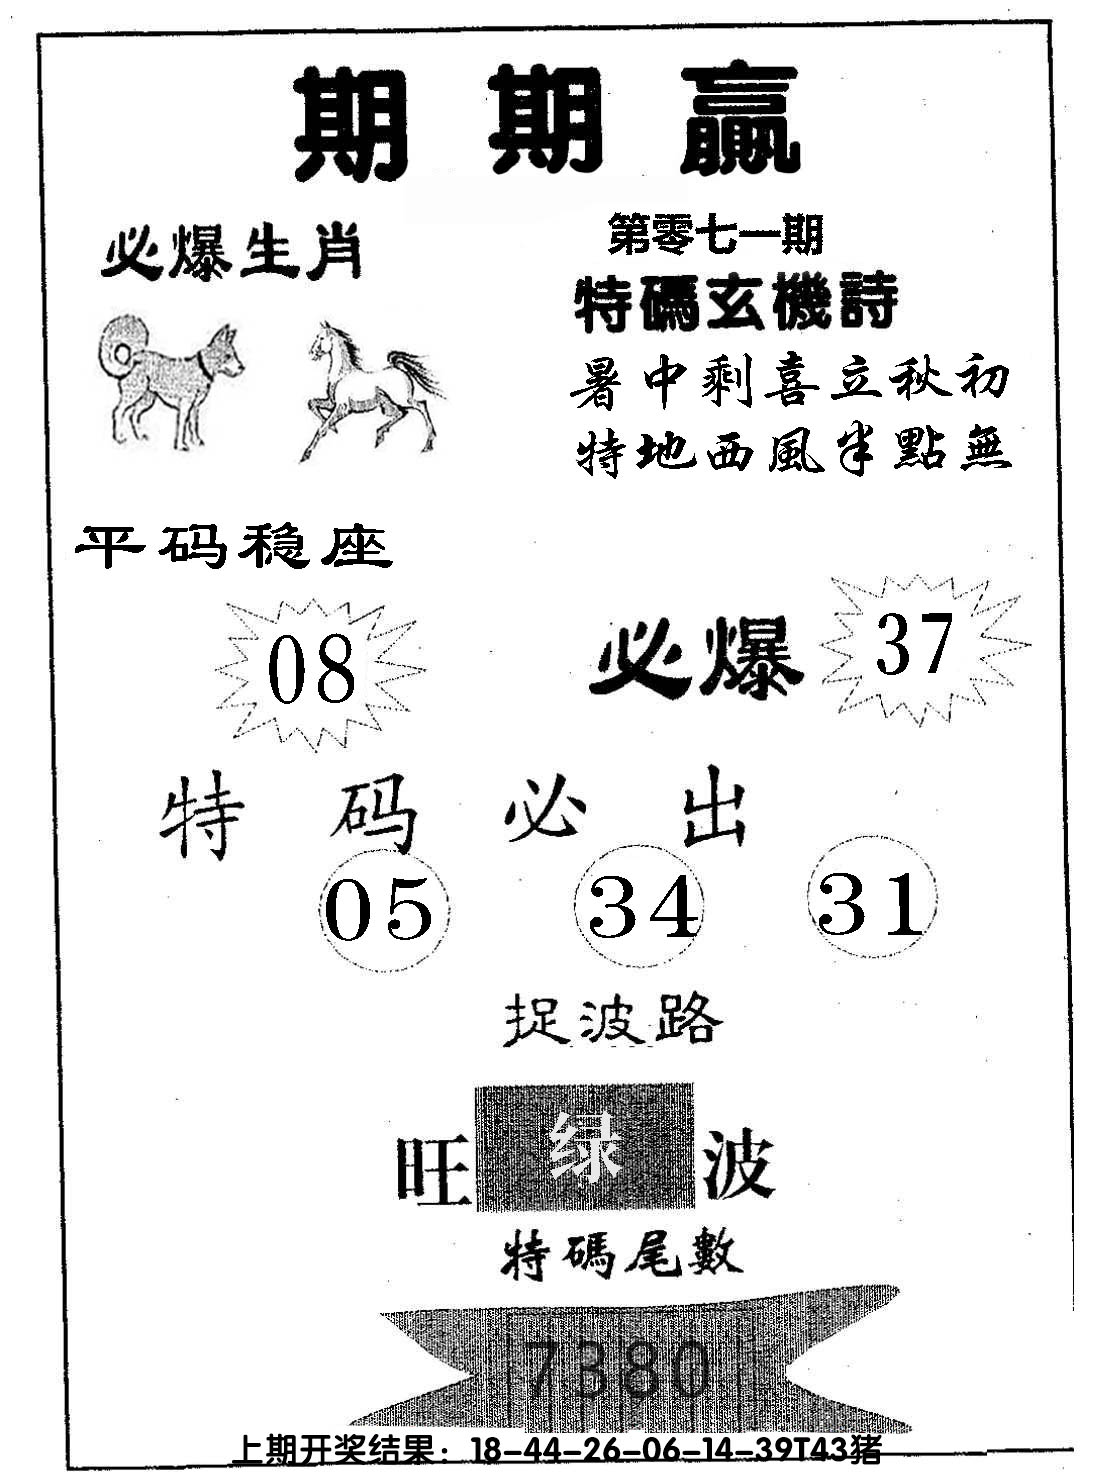 期期赢
必爆生肖
第零七一期
特碼玄機詩
暑中剩喜立秋初
特地西風半點無
平码稳座
08
必爆 37
特码必出
05 34 31
捉波路
旺绿波
特碼尾數
7380
上期开奖结果：18-44-26-06-14-39T43猪